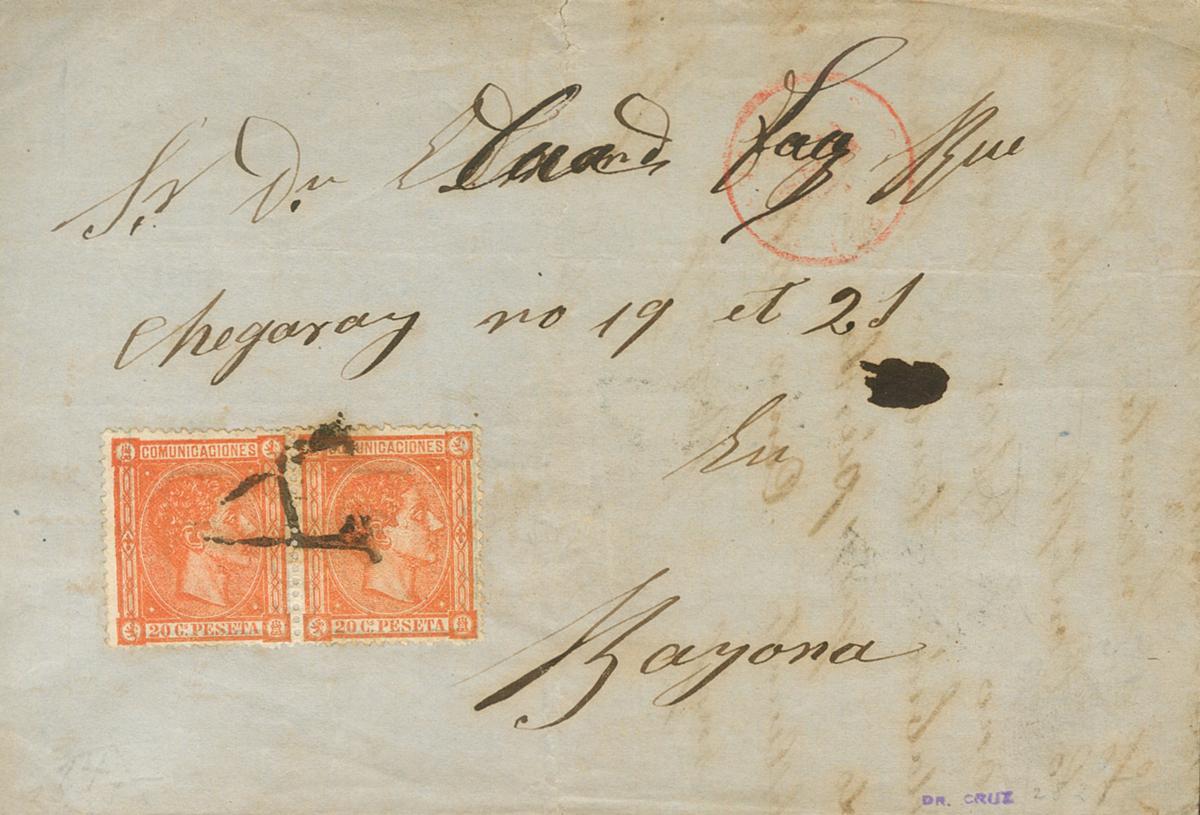 Sr Dn Eduard Fag Rue
Chegaray no 19 et 21
En
Bayona
COMUNICACIONES COMUNICACIONES
20 Cs. PESETA 20 Cs. PESETA
DR. CRUZ